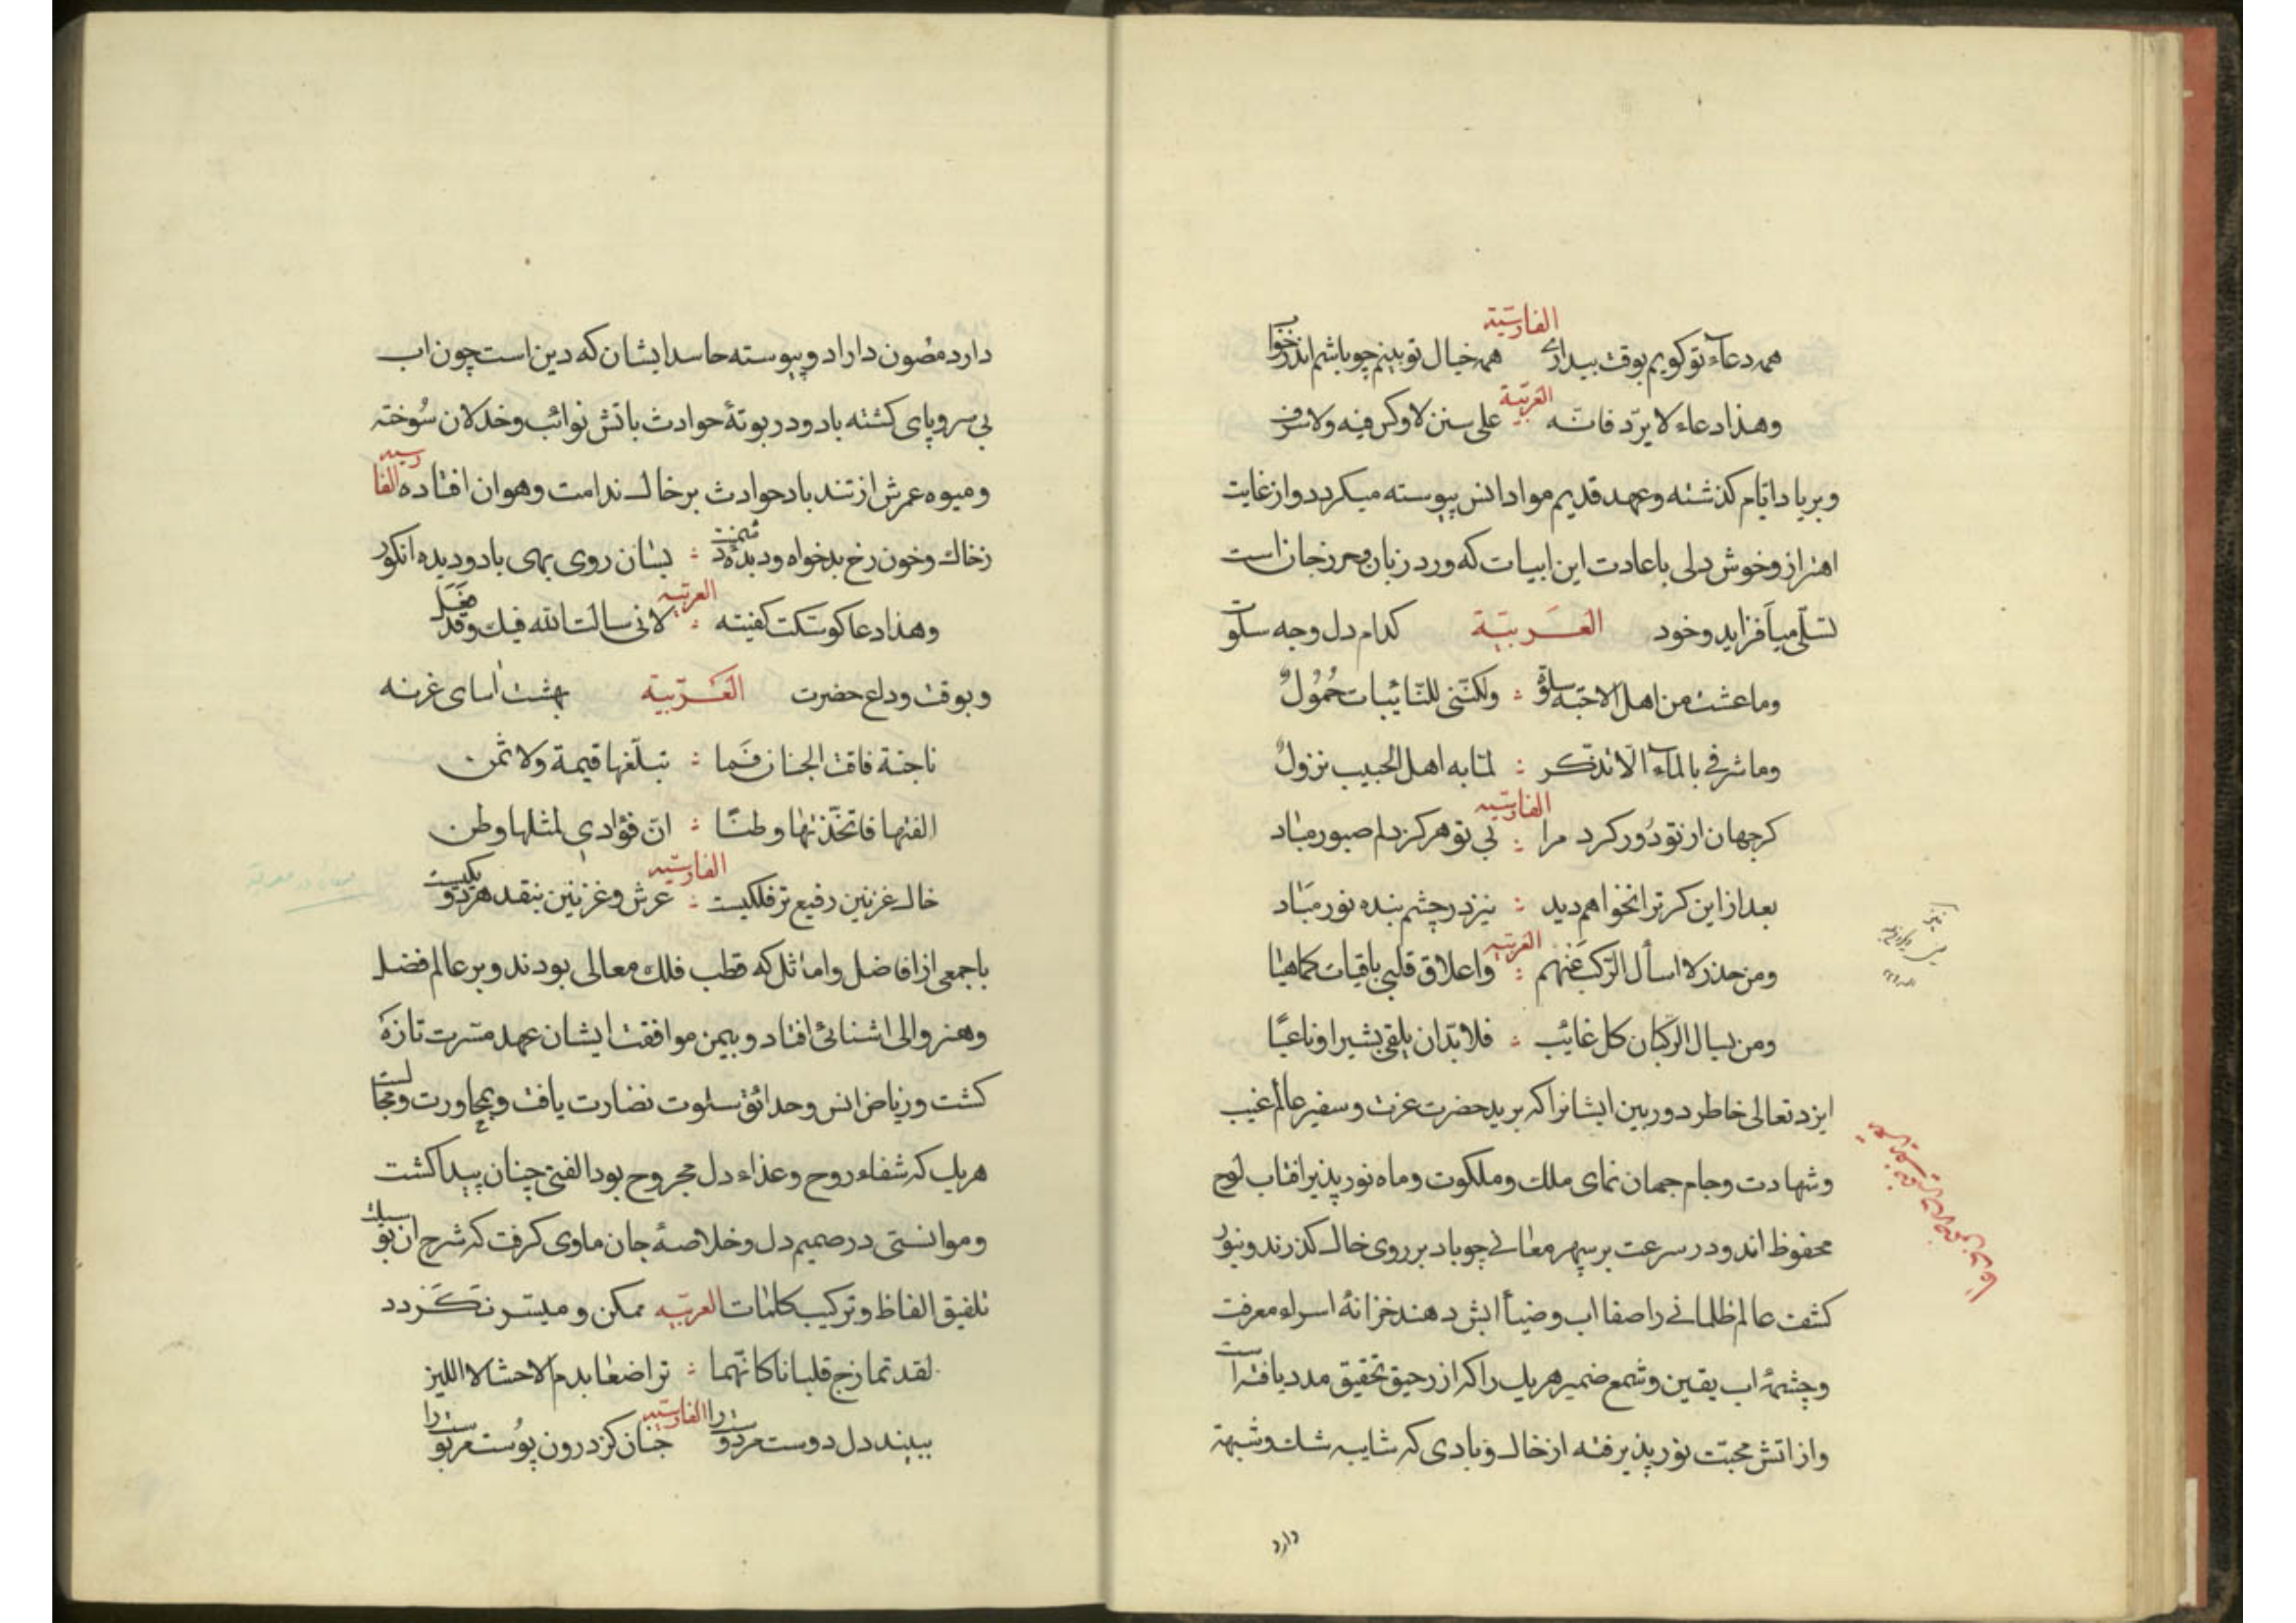 الفارسية
همه دعاء تو كويم بوقت بيدارے همه خيال تو بينم چو باشم اندر خواب
العربية
وهذا دعاء لا يردّ فانه على سنن لا وكس فيه ولا سرف
وبرياد ايام كذشته وعهد قديم مواد انس پيوسته ميكردد واز غايت
اهتزاز وخوش دلى باعادت اين ابيات كه ورد زبان وحرز جان است
تسلّى ميافزايد وخود العربية كدام دل وچه سلوت
وما عشت من اهل الاحبّة سلوة ولكنّنى للنّائبات حمول
وما شرقى بالماء الّا تذكّر لماء به اهل الحبيب نزول
الفارسية
كر جهان از تو دور كرد مرا بى تو هركز دلم صبور مباد
بعد از اين كر ترا نخواهم ديد نيز در چشم بنده نور مباد
العربية
ومن حذر لا اسأل الركب عنهم واعلاق قلبى باقيات كماهيا
ومن يسال الركبان كل غائب فلا بدّ ان يلقى بشيرا او ناعيًا
ايزد تعالى خاطر دوربين ايشانرا كه بريد حضرت عزت وسفير عالم غيب
وشهادت وجام جهان نماى ملك وملكوت وماه نور پذير افتاب لوح
محفوظ اند ودر سرعت بر سپهر معانے چو باد بر روى خاك كذرند وبنور
كشف عالم ظلمانے را صفا اب وضياء اتش دهند خزانهٔ اسراء معرفت
وچشمهٔ اب يقين وشمع ضمير هر يك را كه از رحيق تحقيق مدد يافته است
واز اتش محبّت نور پذيرفته از خاك وبادى كه شايبه شك وشبهة
دارد
دارد مصون داراد وپيوسته حاسد ايشان كه دين است چون اب
بى سر وپاى كشته باد ودر بوتهٔ حوادث باتش نوائب وخذلان سُوخته
وميوه عمرش از تند باد حوادث بر خاك ندامت وهوان افتاده الفارسيه
زخاك وخون رخ بدخواه وديده دشمنت بسان روى بهى باد وديده انكور
العربيه
وهذا دعا لو سكت كفيته لانى سالت الله فيك وقد فعل
وبوقت وداع حضرت العربية بهشت اساى غزنه
ناجنة فاقت الجنان فما تبلّغها قيمة ولا ثمن
الفتها فاتخّذتها وطنًا انّ فؤادي لمثلها وطن
الفارسيه
خاك غزنين رفيع تر فلكيست عرش وغزنين بنقد هر دو يكيست
با جمعى از افاضل واماثل كه قطب فلك معالى بودند وبر عالم فضل
وهنر والى اشنائى افتاد وبيمن موافقت ايشان عهد مسّرت تازه
كشت ورياض انس وحدائق سلوت نضارت يافت وبمجاورت ومجالست
هر يك كه شفاء روح وغذاء دل مجروح بود الفتى چنان پيدا كشت
وموانستى در صميم دل وخلاصهٔ جان ماوى كرفت كه شرح ان بوسيلت
تلفيق الفاظ وتركيب كلمات العربيه ممكن وميسّر نكردد
لقد تمازج قلبانا كانّهما تراضعا بدم الاحشا لا اللبن
الفارسيه
ببيند دل دوست مر دوست را چنان كز درون پوست مر پوست را